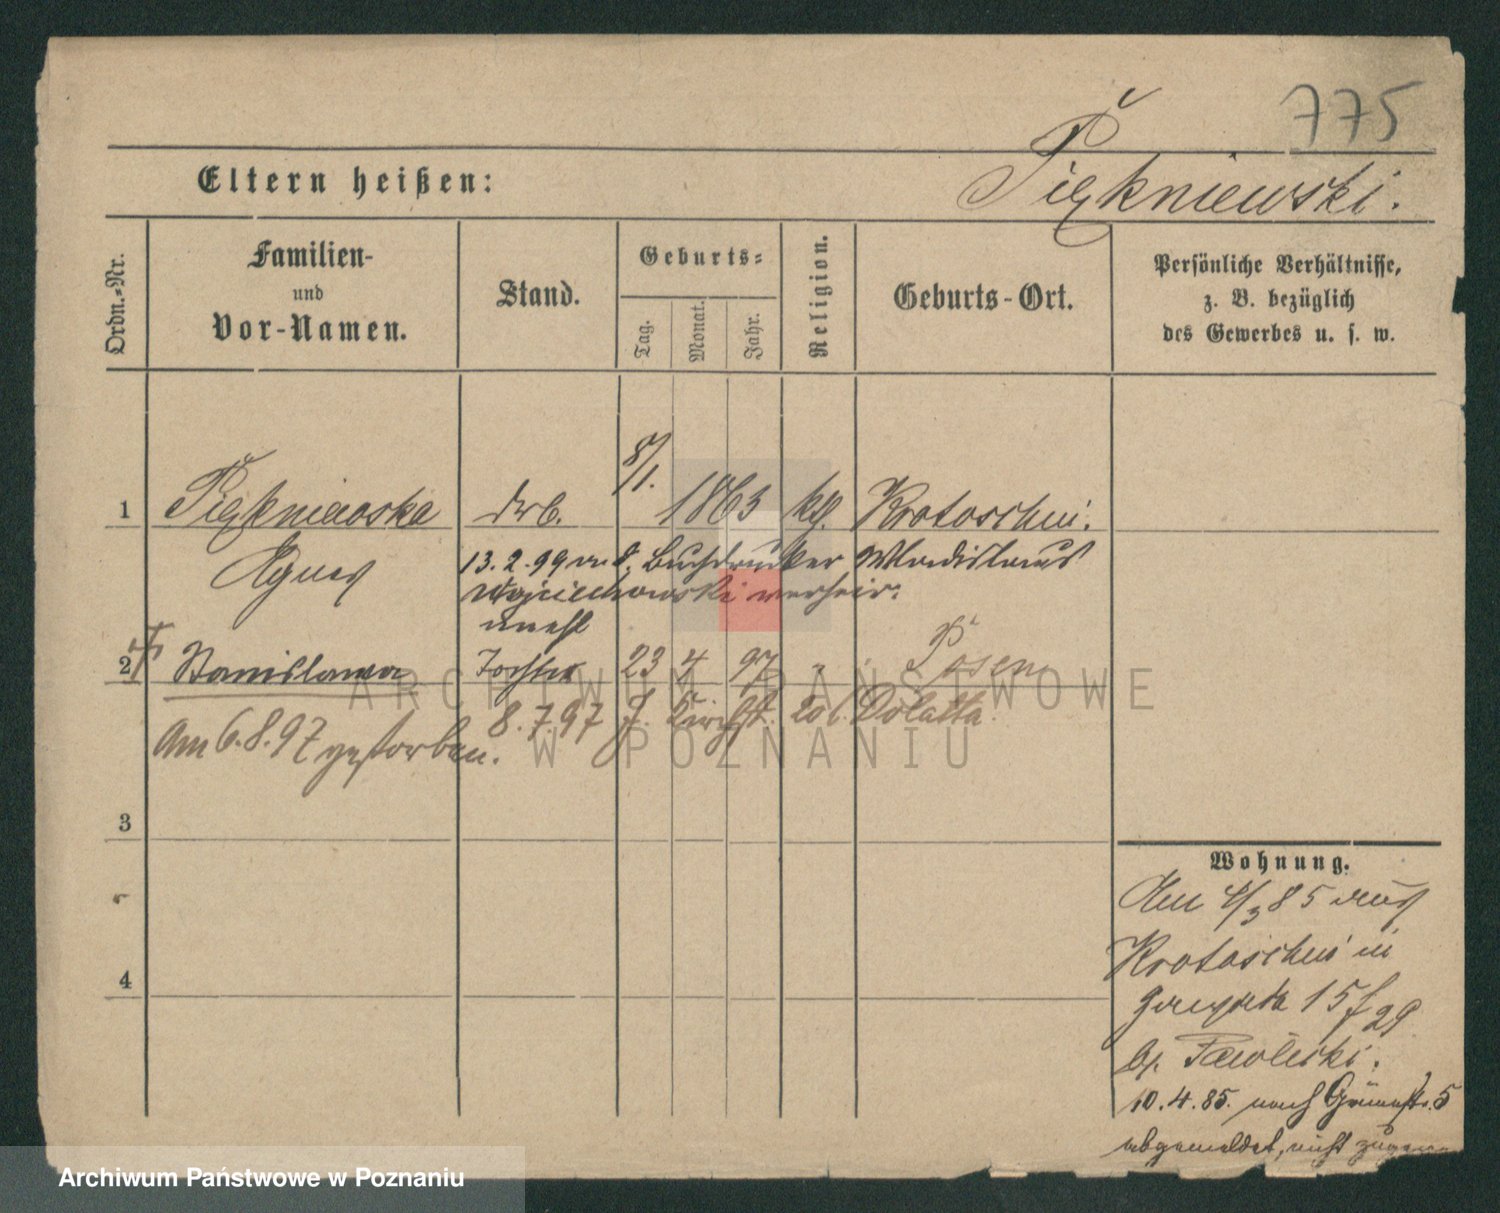 775
Eltern heißen: Piękniewski.
Ordn.-Nr.
Familien-
und
Vor-Namen.
Stand.
Geburts-
Tag.
Monat.
Jahr.
Religion.
Geburts-Ort.
Persönliche Verhältnisse,
z. B. bezüglich
des Gewerbes u. s. w.
8/1.
1 Piękniewska 1863 kth. Krotoschin.
Agnes
13.2.99 an d. Buchdrucker Wladislaus
Wojciechowski verheir.
unehl
2 Stanislawa Tochter 23 4 97 " Posen
8.7.97 J. Kirchst. 20 b. Dolatta.
Am 6.8.97 gestorben.
3
4
Wohnung.
Am 4/3 85 aus
Krotoschin in
15
29
b/. Pawlicki.
10.4.85. nach Grünestr. 5
abgemeldet, nicht
ARCHIWUM PAŃSTWOWE
W POZNANIU
Archiwum Państwowe w Poznaniu